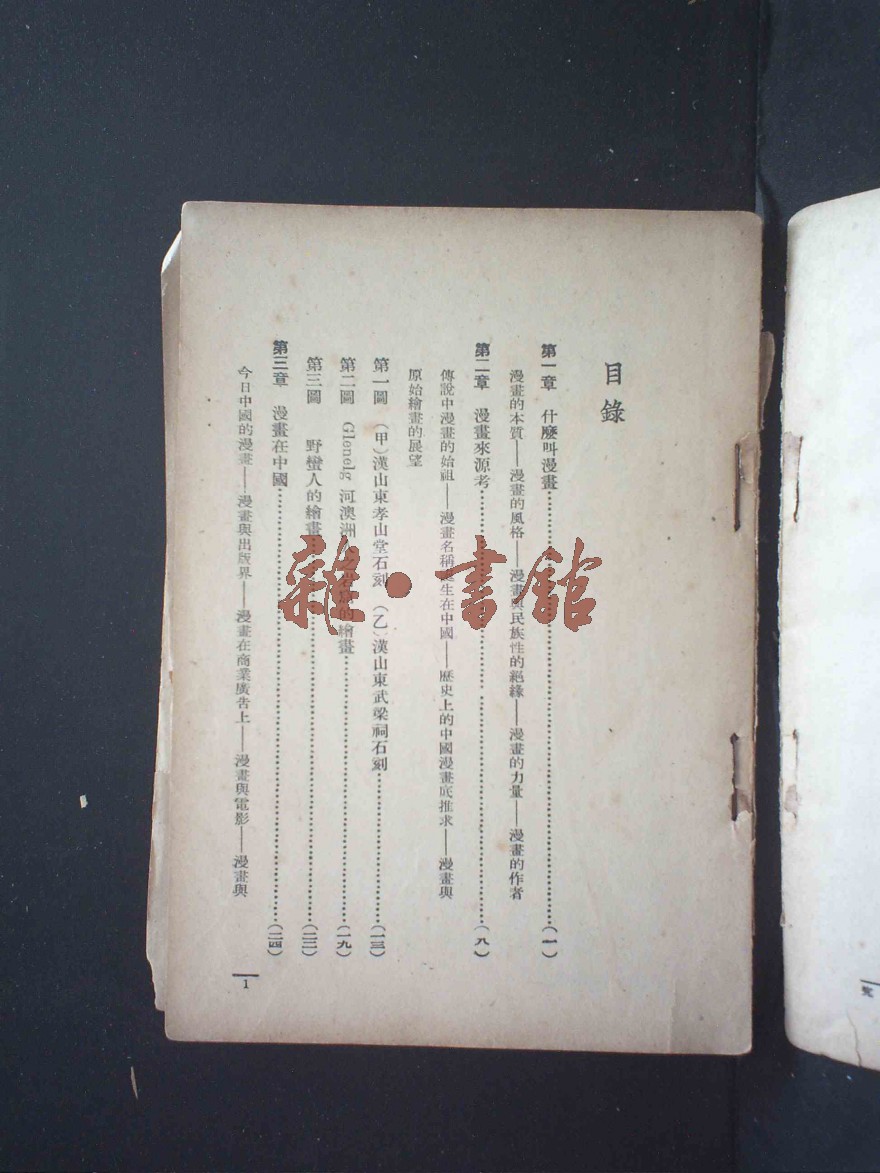 目錄
第一章 什麼叫漫畫……(一)
漫畫的本質——漫畫的風格——漫畫與民族性的絕緣——漫畫的力量——漫畫的作者
第二章 漫畫來源考……(八)
傳說中漫畫的始祖——漫畫名稱產生在中國——歷史上的中國漫畫底推求——漫畫與
原始繪畫的展望
第一圖 (甲)漢山東孝山堂石刻 (乙)漢山東武梁祠石刻……(一三)
第二圖 Glenelg 河澳洲 的繪畫……(一九)
第三圖 野蠻人的繪畫……(二三)
第三章 漫畫在中國……(二四)
今日中國的漫畫——漫畫與出版界——漫畫在商業廣告上——漫畫與電影——漫畫與
1
雜·書館